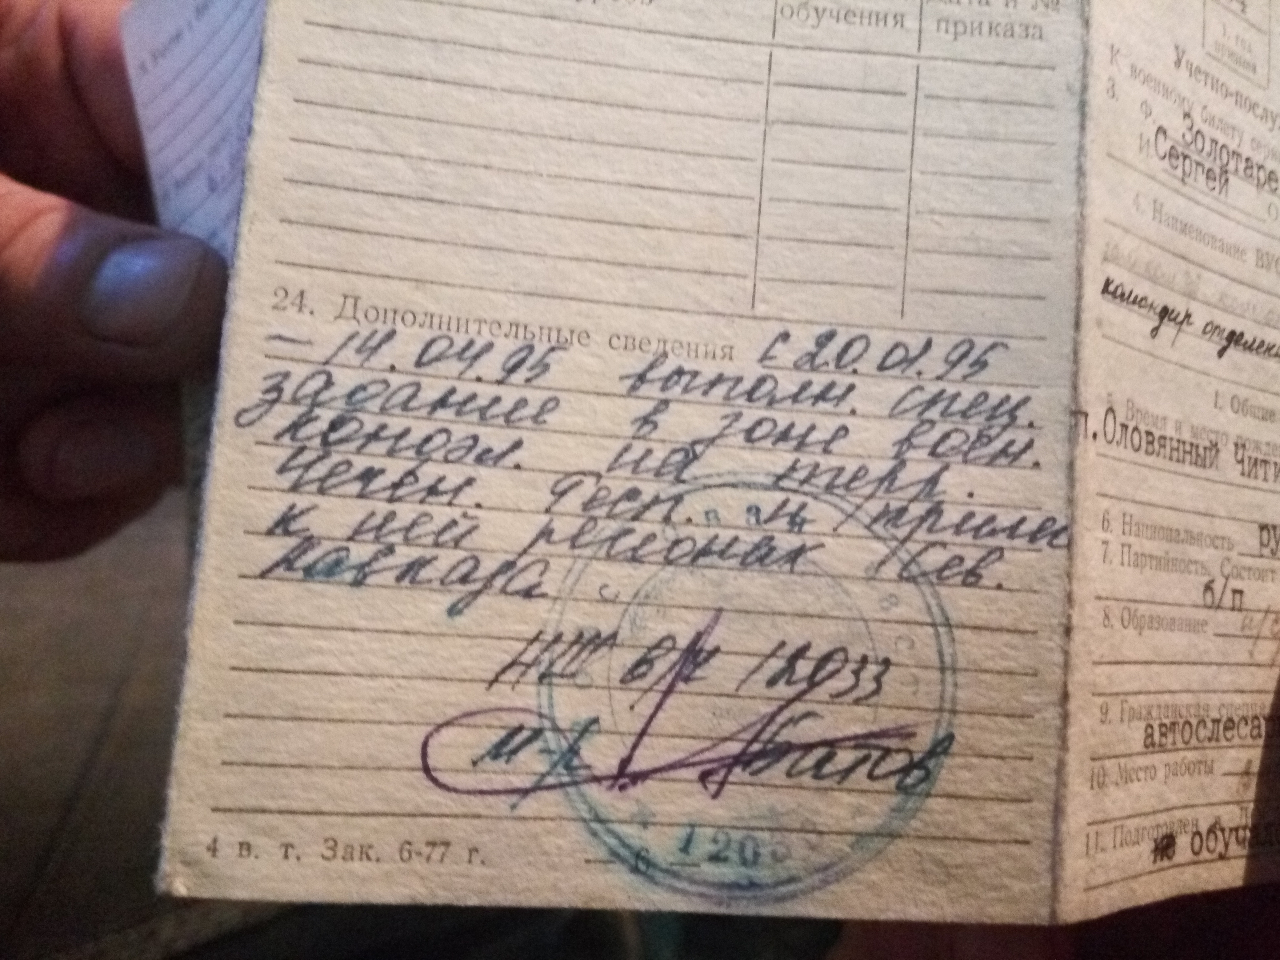 обучения
приказа
24. Дополнительные сведения с 20.01.95
– 14.04.95 выполн. спец.
задание в зоне воен.
конфл. на терр.
Чечен. Респ. и прилег
к ней регионах Сев.
Кавказа
НШ в/ч 12033
м-р Батов
1203
4 в. т. Зак. 6-77 г.
1. год
Учетно-послу
К военному билету серии
3. Ф. Золотаре
И. Сергей
4. Наименование ВУС
командир отделени
1. Общие
5. Время и место рожден
п.Оловянный Чит
6. Национальность ру
7. Партийность. Состоит
б/п
8. Образование
9. Гражданская специ
автослеса
10. Место работы
11. Подготовлен
не обуча